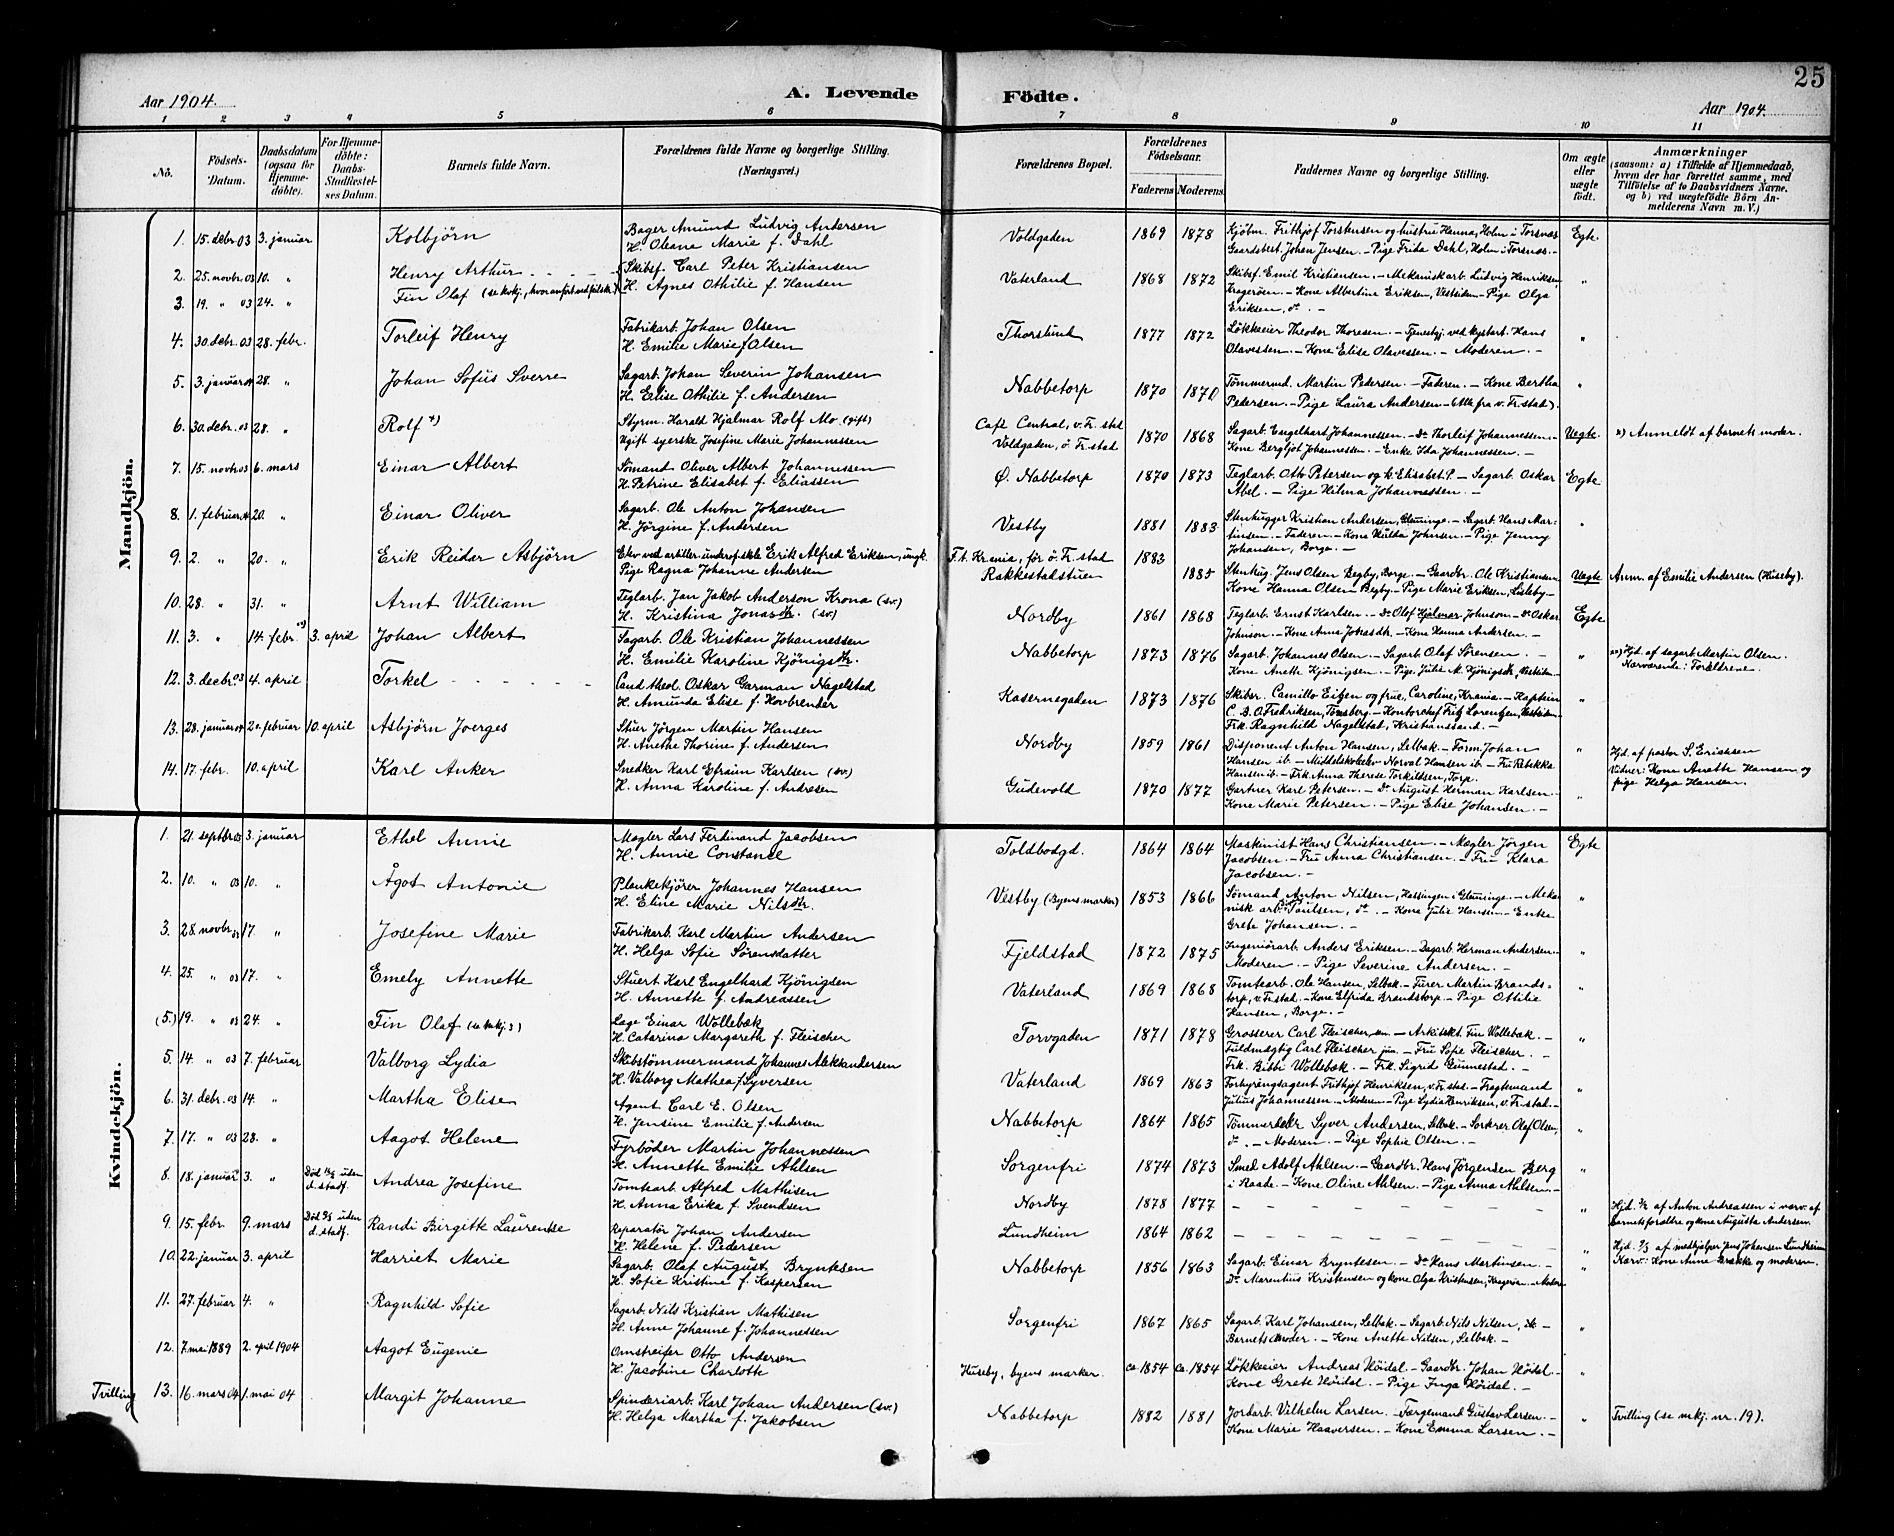 25
Aar 1904. A. Levende Födte. Aar 1904.
1 2 3 4 5 6 7 8 9 10 11
No. Födsels-Datum. Daabsdatum (ogsaa for Hjemme-döbte). For Hjemme-döbte: Daabs-Stadfæstel-ses Datum. Barnets fulde Navn. Forældrenes fulde Navne og borgerlige Stilling. (Næringsvei.) Forældrenes Bopæl. Forældrenes Födselsaar. Faderens Moderens Faddernes Navne og borgerlige Stilling. Om ægte eller uægte födt. Anmærkninger (saasom: a) i Tilfælde af Hjemmedaab, hvem der har forrettet samme, med Tilföielse af to Daabsvidners Navne. og b) ved uægtefödte Börn An-melderens Navn m. V.)
Mandkjön.
1. 15. debr. 03 3. januar Kolbjörn Bager Amund Ludvig Andersen Voldgaden 1869 1878 Kjöbm. Frithjof Torstensen og hustru Hanna, Holm i Torsnæs Egte
H. Oleane Marie f. Dahl Gaardsbest. Johan Jensen. – Pige Frida Dahl, Holm i Torsnæs. –
2. 25. novbr. 03 10. " Henry Arthur Skibsf. Carl Peter Kristiansen Vaterland 1868 1872 Skibsf. Emil Kristiansen. – Mekanisk arb. Ludvig Henriksen "
3. 19. " 03 24. " Fin Olaf (se kvkj., hvor anfört ved feilskr.) H. Agnes Othilie f. Hansen Kragerøen. – Kone Albertine Eriksen, Vestsiden – Pige Olga
Eriksen, do. –
4. 30. debr. 03 28. febr. Torleif Henry Fabrikarb. Johan Olsen Thorslund 1877 1872 Løkkeeier Theodor Thoresen. – Tjenestgj. ved kystart. Hans "
H. Emilie Marie f. Olsen Olavessen. – Kone Elise Olavessen. – Moderen. –
5. 3. januar 04 28. " Johan Sofus Sverre Sagarb. Johan Severin Johansen Nabbetorp 1870 1870 Tömmermd. Martin Pedersen. – Faderen. – Kone Bertha "
H. Elise Othilie f. Andersen Pedersen. – Pige Laura Andersen – (Alle fra v. Fr.stad).
6. 30. debr. 03 28. " Rolf x) Styrm. Harald Hjalmar Rolf Mo (gift) Café Central, v. Fr. stad 1870 1868 Sagarb. Engelhard Johannessen. – Do Thorleif Johannessen. – Uegte. x) Anmeldt af barnets moder.
Ugift syerske Josefine Marie Johannessen Voldgaden, ö. Fr. stad Kone Bergljot Johannessen. – Enke Ida Johannessen. –
7. 15. novbr. 03 6. mars Einar Albert Sömand Oliver Albert Johannessen Ø. Nabbetorp 1870 1873 Teglarb. Otto Petersen og k. Elisabet P. – Sagarb. Oskar Egte
H. Petrine Elisabet f. Eliassen Abel. – Pige Hilma Johannessen. –
8. 1. februar 04 20. " Einar Oliver Sagarb. Ole Anton Johansen Vestby 1881 1883 Stenhugger Kristian Andersen, Glemminge. – Sagarb. Hans Mar- "
H. Jörgine f. Andersen tinsen. – Faderen – Kone Hulda Johnsen – Pige Jenny
Johansen, Borge. –
9. 2. " 20. " Erik Reidar Asbjörn Elev ved artilleri underof. skole Erik Alfred Eriksen, ungk. F. t. Krania, før ö. Fr. stad 1883
Pige Ragna Johanne Andersen Rakkestadstuen 1885 Stenhug. Jens Olsen Begby, Borge. – Gaardbr. Ole Kristiansen Uegte Anm. af Emilie Andersen (Huseby).
Kone Hanna Olsen Begby – Pige Marie Eriksen, Lisleby –
10. 28. " 31. " Arnt William Teglarb. Jan Jakob Anderson Krona (sv.) Nordby 1861 1868 Teglarb. Ernst Karlsen. – Do Olof Hjalmar Johnson – Do Oskar Egte
H. Kristina Jonasdtr. (sv.) Johnson. – Kone Anna Johasdtr. – Kone Hanna Andersen. –
11. 3. " 14. febr. xx) 3. april Johan Albert Sagarb. Ole Kristian Johannessen Nabbetorp 1873 1876 Sagarb. Johannes Olsen. – Sagarb. Olaf Sörensen. – " xx) Hjd. af sagarb. Martin Olsen.
H. Emilie Karoline Kjönigsdtr. Kone Anette Kjönigsen. – Pige Julie M. Kjönigsdtr., Vestsiden – Nærværende: Forældrene.
12. 3. decbr. 03 4. april Torkel Cand. theol. Oskar Garman Nagelstad Kasernegaden 1873 1876 Skibsr. Camillo Eitzen og frue, Caroline, Krania. – Kaptein "
H. Amunda Elise f. Hovbrender C. B. O. Fredriksen, Tønsberg. – Kontorchef Fritz Lorentzen, Vestsiden –
Frk. Ragnhild Nagelstad, Kristianssand. –
13. 28. januar 04 2. februar 10. april Asbjörn Joerges Stuer Jörgen Martin Hansen Nordby 1859 1861 Disponent Anton Hansen, Selbak. – Form. Johan " Hjd. af pastor S. Erichsen
H. Anethe Thorine f. Andersen Hansen ib. – Middelskoleelev Norval Hansen ib. – Fru Rebekka Vidner: Kone Anette Hansen og
Hansen ib. – Frk. Anna Therese Torkildsen, Torp. pige Helga Hansen.
14. 17. febr. 10. april Karl Anker Snedker Karl Efraim Karlsen (sv.) Gudevold 1870 1877 Gartner Karl Petersen. – Do August Herman Karlsen. – "
H. Anna Karoline f. Andresen Kone Marie Petersen. – Pige Elise Johansen. –
Kvindekjön.
1. 21. septbr. 03 3. januar Ethel Annie Mægler Lars Ferdinand Jacobsen Toldbodgd. 1864 1864 Maskinist Hans Christiansen. – Mægler Jörgen Egte
H. Annie Constance Jacobsen. – Fru Anna Christiansen. – Fru Klara
Jacobsen. –
2. 10. " 03 10. " Ågot Antonie Plankekjörer Johannes Hansen Vestby (Byens marker) 1853 1866 Sömand Anton Nilsen, Hassingen i Glemminge. – Meka- "
H. Eline Marie Nilsdtr. nisk arb. Paulsen, do. – Kone Julie Hansen – Enke
Grete Johansen. –
3. 28. novbr. 03 17. " Josefine Marie Fabrikarb. Karl Martin Andersen Fjeldstad 1872 1875 Ingeniörarb. Anders Eriksen. – Dagarb. Herman Andersen. – "
H. Helga Sofie Sörensdatter Moderen. – Pige Severine Andersen. –
4. 25. " 03 17. " Emely Annette Stuert Karl Engelhard Kjönigsen Vaterland 1869 1868 Tomtearb. Ole Hansen, Selbak. – Fürer Martin Brands- "
H. Annette f. Andreassen torp, v. Fr. stad. – Kone Elfrida Brandstorp. – Pige Ottilie
Hansen, Borge. –
(5.) 19. " 03 24. " Fin Olaf (se mkj. 3) Læge Einar Wöllebæk Torvgaden 1871 1878 Grosserer Carl Fleischer, sen. – Arkitekt Fin Wöllebæk. – "
H. Catarina Margareth f. Fleischer Fuldmægtig Carl Fleischer jun. – Fru Sofie Fleischer. –
Frk. Bibbi Wöllebæk. – Frk. Sigrid Gunnestad. –
5. 14. " 03 7. februar Valborg Lydia Skibstömmermand Johannes Aleksandersen Vaterland 1869 1863 Forhyringsagent Frithjof Henriksen, v. Fr. stad. – Fragtemand "
H. Valborg Mathea f. Syversen Julius Johannessen. – Moderen – Pige Lydia Henriksen, v. Fr. stad. –
6. 31. debr. 03 14. " Martha Elise Agent Carl E. Olsen Nabbetorp 1864 1865 Tømmerdeler Syver Andersen, Selbak. – Sorterer Olaf Olsen, "
H. Jensine Emilie f. Andersen do. – Moderen – Pige Sophie Olsen. –
7. 17. " 03 28. " Aagot Helene Fyrböder Martin Johannessen Sorgenfri 1874 1873 Smed Adolf Ahlsen. – Gaardbr. Hans Jörgensen Berg "
H. Annette Emilie Ahlsen i Raade. – Kone Oline Ahlsen. – Pige Anna Ahlsen. –
8. 18. januar 3. " Död uden d. stadf. Andrea Josefine Tomtearb. Alfred Mathisen Nordby 1878 1877 – – – – – – – " Hjd. 3/2 af Anton Andreassen i nærv. af
H. Anna Erika f. Svendsen barnets forældre og kone Augusta Andersen.
9. 15. febr. 9. mars Död uden d. stadf. Randi Birgitte Laurentse Reparatör Johan Andersen Lundheim 1864 1862 – – – – – – – " Hjd. 9/3 af medhjælper Jens Johansen Lundheim
H. Helene f. Pedersen Nærv: Kone Anne Brække og moderen.
10. 22. januar 3. april Harriet Marie Sagarb. Olaf August Bryntesen Nabbetorp 1856 1863 Sagarb. Einar Bryntesen. – Do Hans Martinsen. – "
H. Sofie Kristine f. Kaspersen Do Marentius Kristensen og kone Olga Kristensen, Kragerøen. – Moderen
11. 27. februar 4. " Ragnhild Sofie Sagarb. Nils Kristian Mathisen Sorgenfri 1867 1865 Sagarb. Karl Johansen, Selbak. – Sagarb. Nils Nilsen, do – "
H. Anne Johanne f. Johannessen Barnets Moder. – Kone Anette Nilsen, Selbak. –
12. 7. mai 1889 2. april 1904 Aagot Eugenie Omstreifer Otto Andersen Huseby, byens marker. ca. 1854 ca. 1854 Løkkeeier Andreas Höidal. – Gaardbr. Johan Höidal. – "
H. Jacobine Charlotte Kone Grete Höidal. – Pige Inga Höidal. –
Tvilling 13. 16. mars 04 1. mai 04 Margit Johanne Spinderiarb. Karl Johan Andersen (sv.) Nabbetorp 1882 1881 Jordarb. Vilhelm Larsen. – Færgemand Gustav Larsen. – " Tvilling (se mkj. nr. 19).
H. Helga Martha f. Jakobsen Kone Marie Haaversen. – Kone Emma Larsen. –